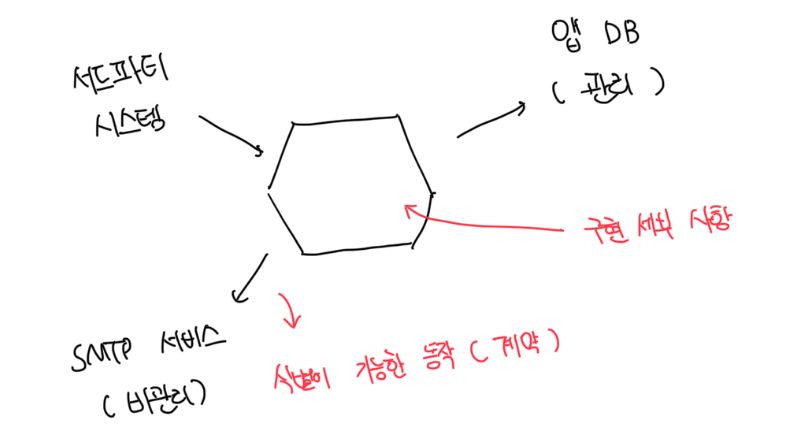 서드파티
시스템
앱 DB
( 관리 )
구현 세부 사항
SMTP 서비스
( 비관리 )
식별이 가능한 동작 ( 계약 )